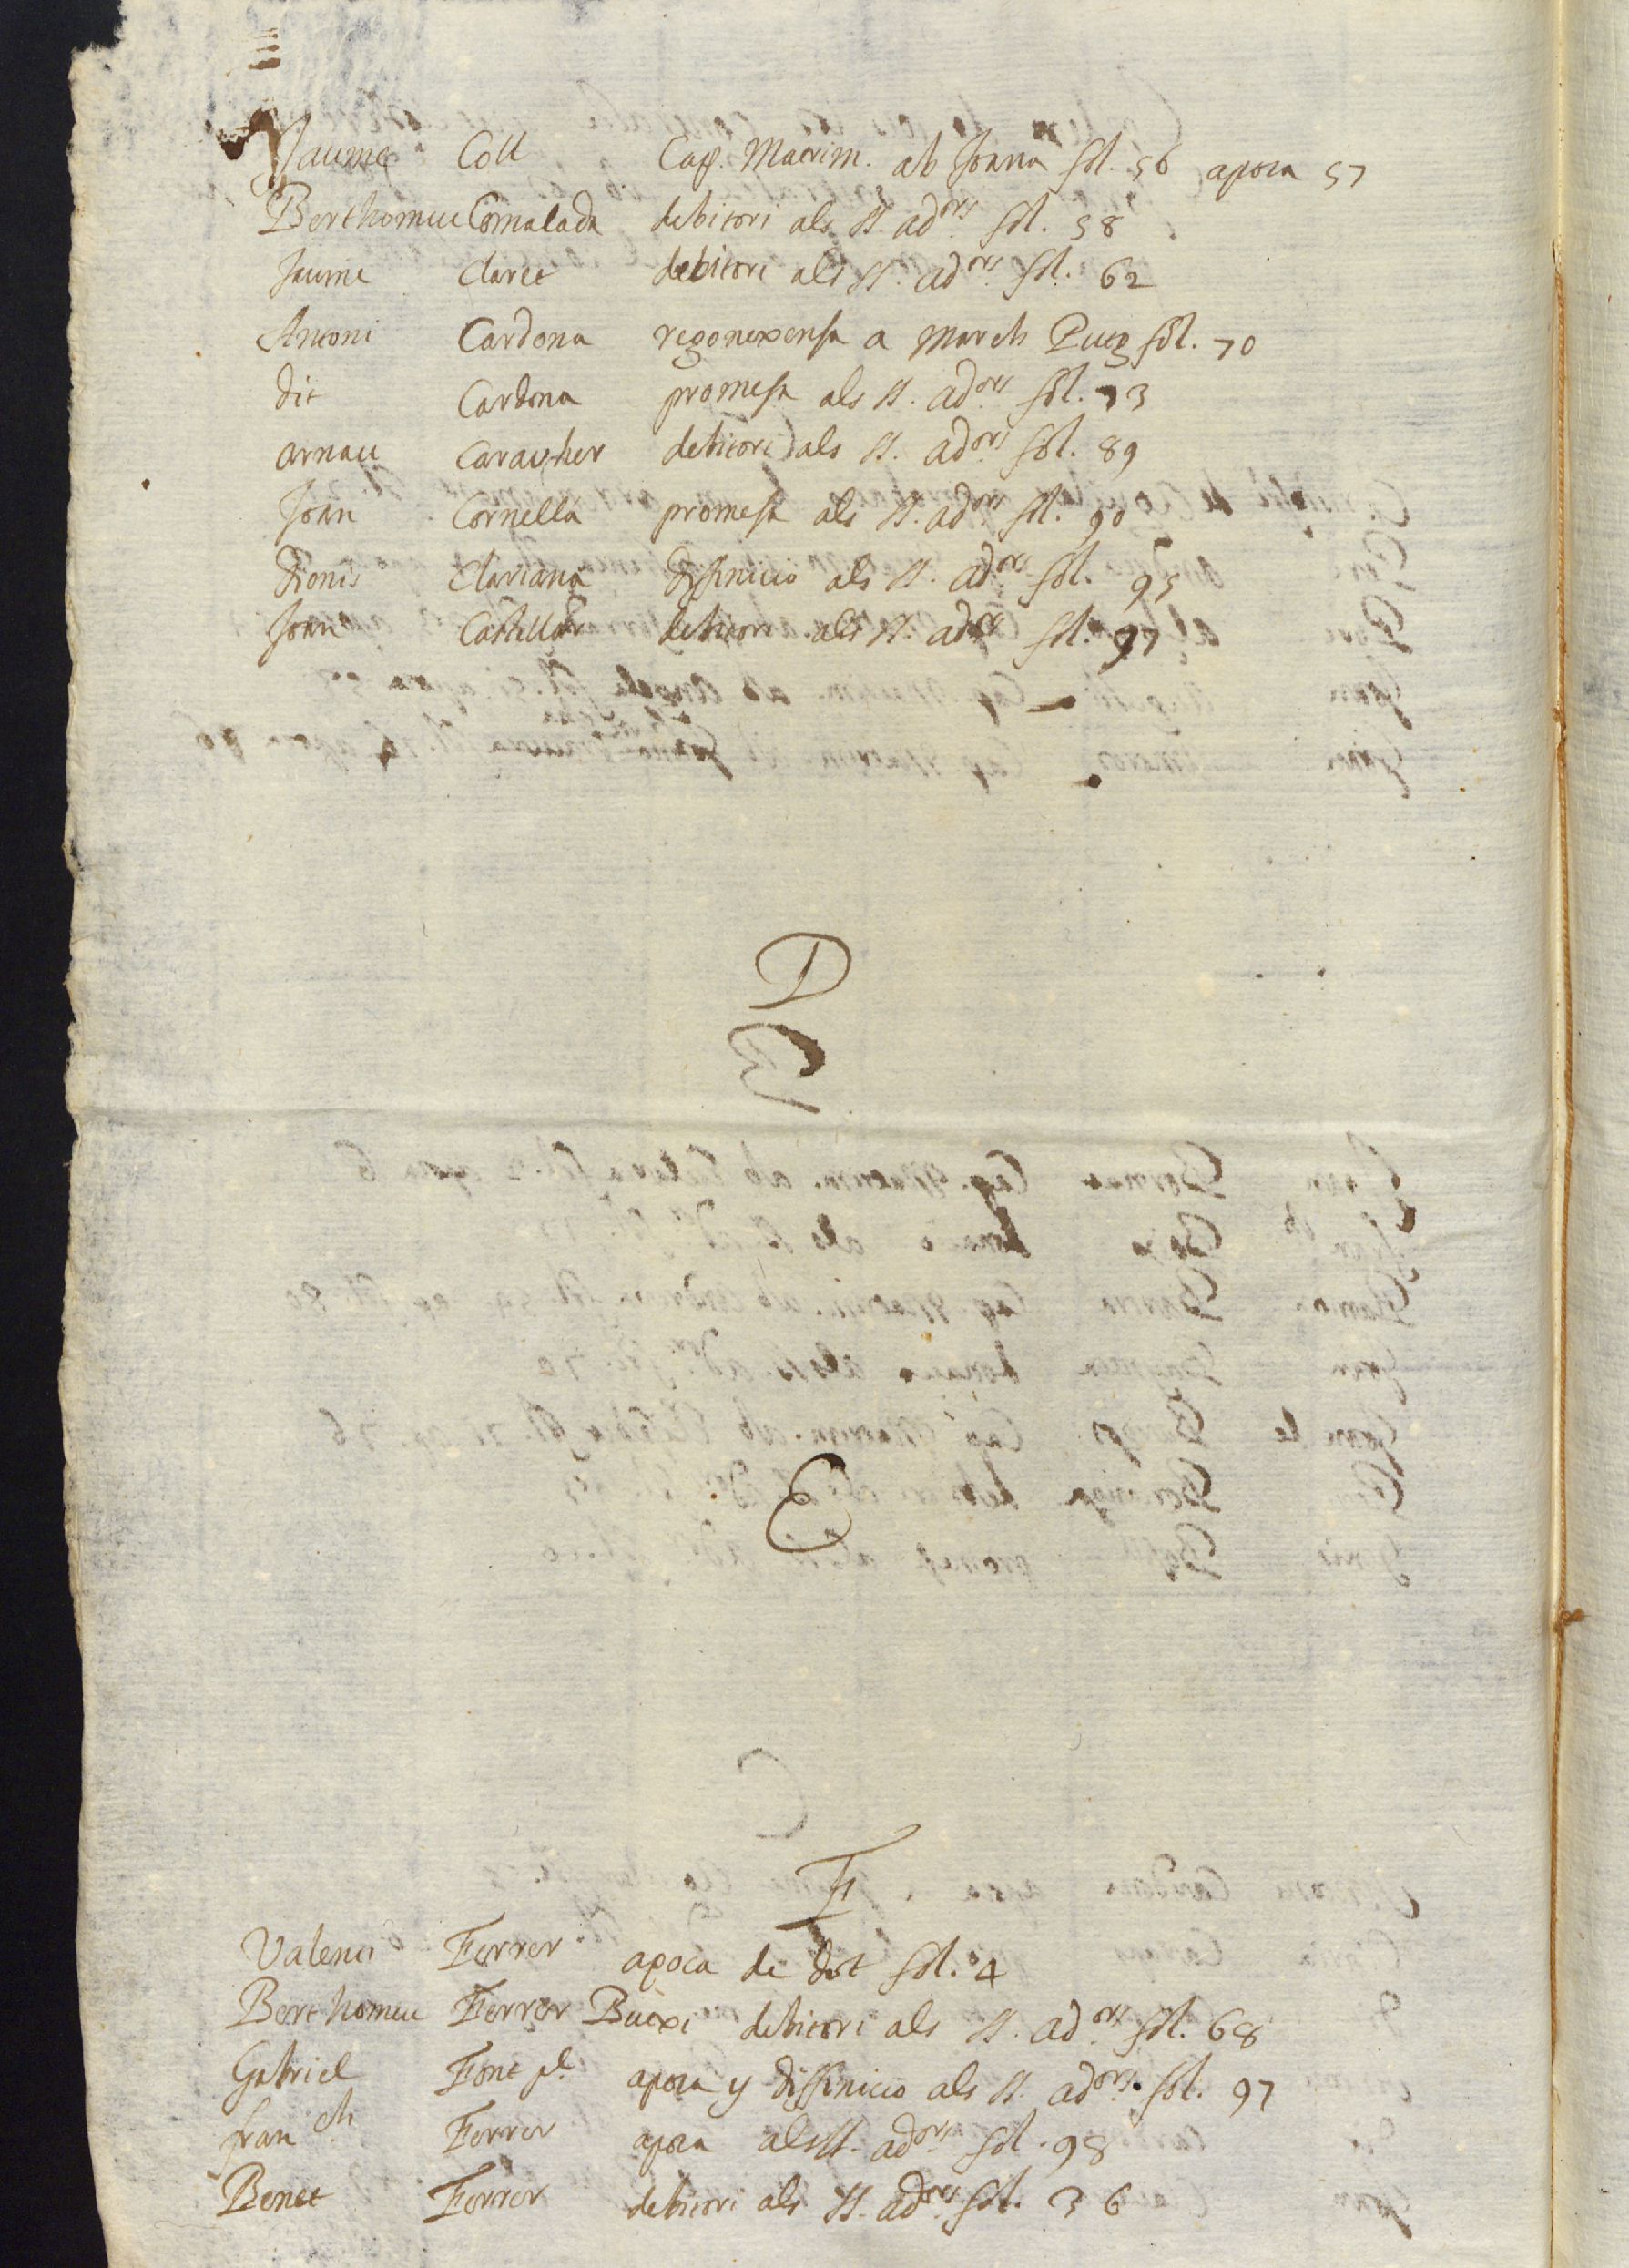 Jaume Coll Cap. Matrim. ab Joana fol. 56 apoca 57
Berthomeu Comalada debitori als SS. ad.ors fol. 58
Jaume Claret debitori als SS. ad.ors fol. 62
Antoni Cardona regonexensa a March Puig fol. 70
dit Cardona promesa als SS. ad.ors fol. 73
Arnau debitori als SS. ad.ors fol. 89
Joan Cornella promesa als SS. ad.ors fol. 90
Dionis Clariana diffinicio als SS. ad.ors fol. 95
Joan Castellar debitori als SS. ad.ors fol. 97
D
E
F
Valenti Ferrer apoca de dot fol. 4
Berthomeu Ferrer Buexi debitori als SS. ad.ors fol. 68
Gabriel Font apoca y diffinicio als SS. ad.ors fol. 97
fran.ch Ferrer apoca als SS. ad.ors fol. 98
Benet Ferrer debitori als SS. ad.ors fol. 36